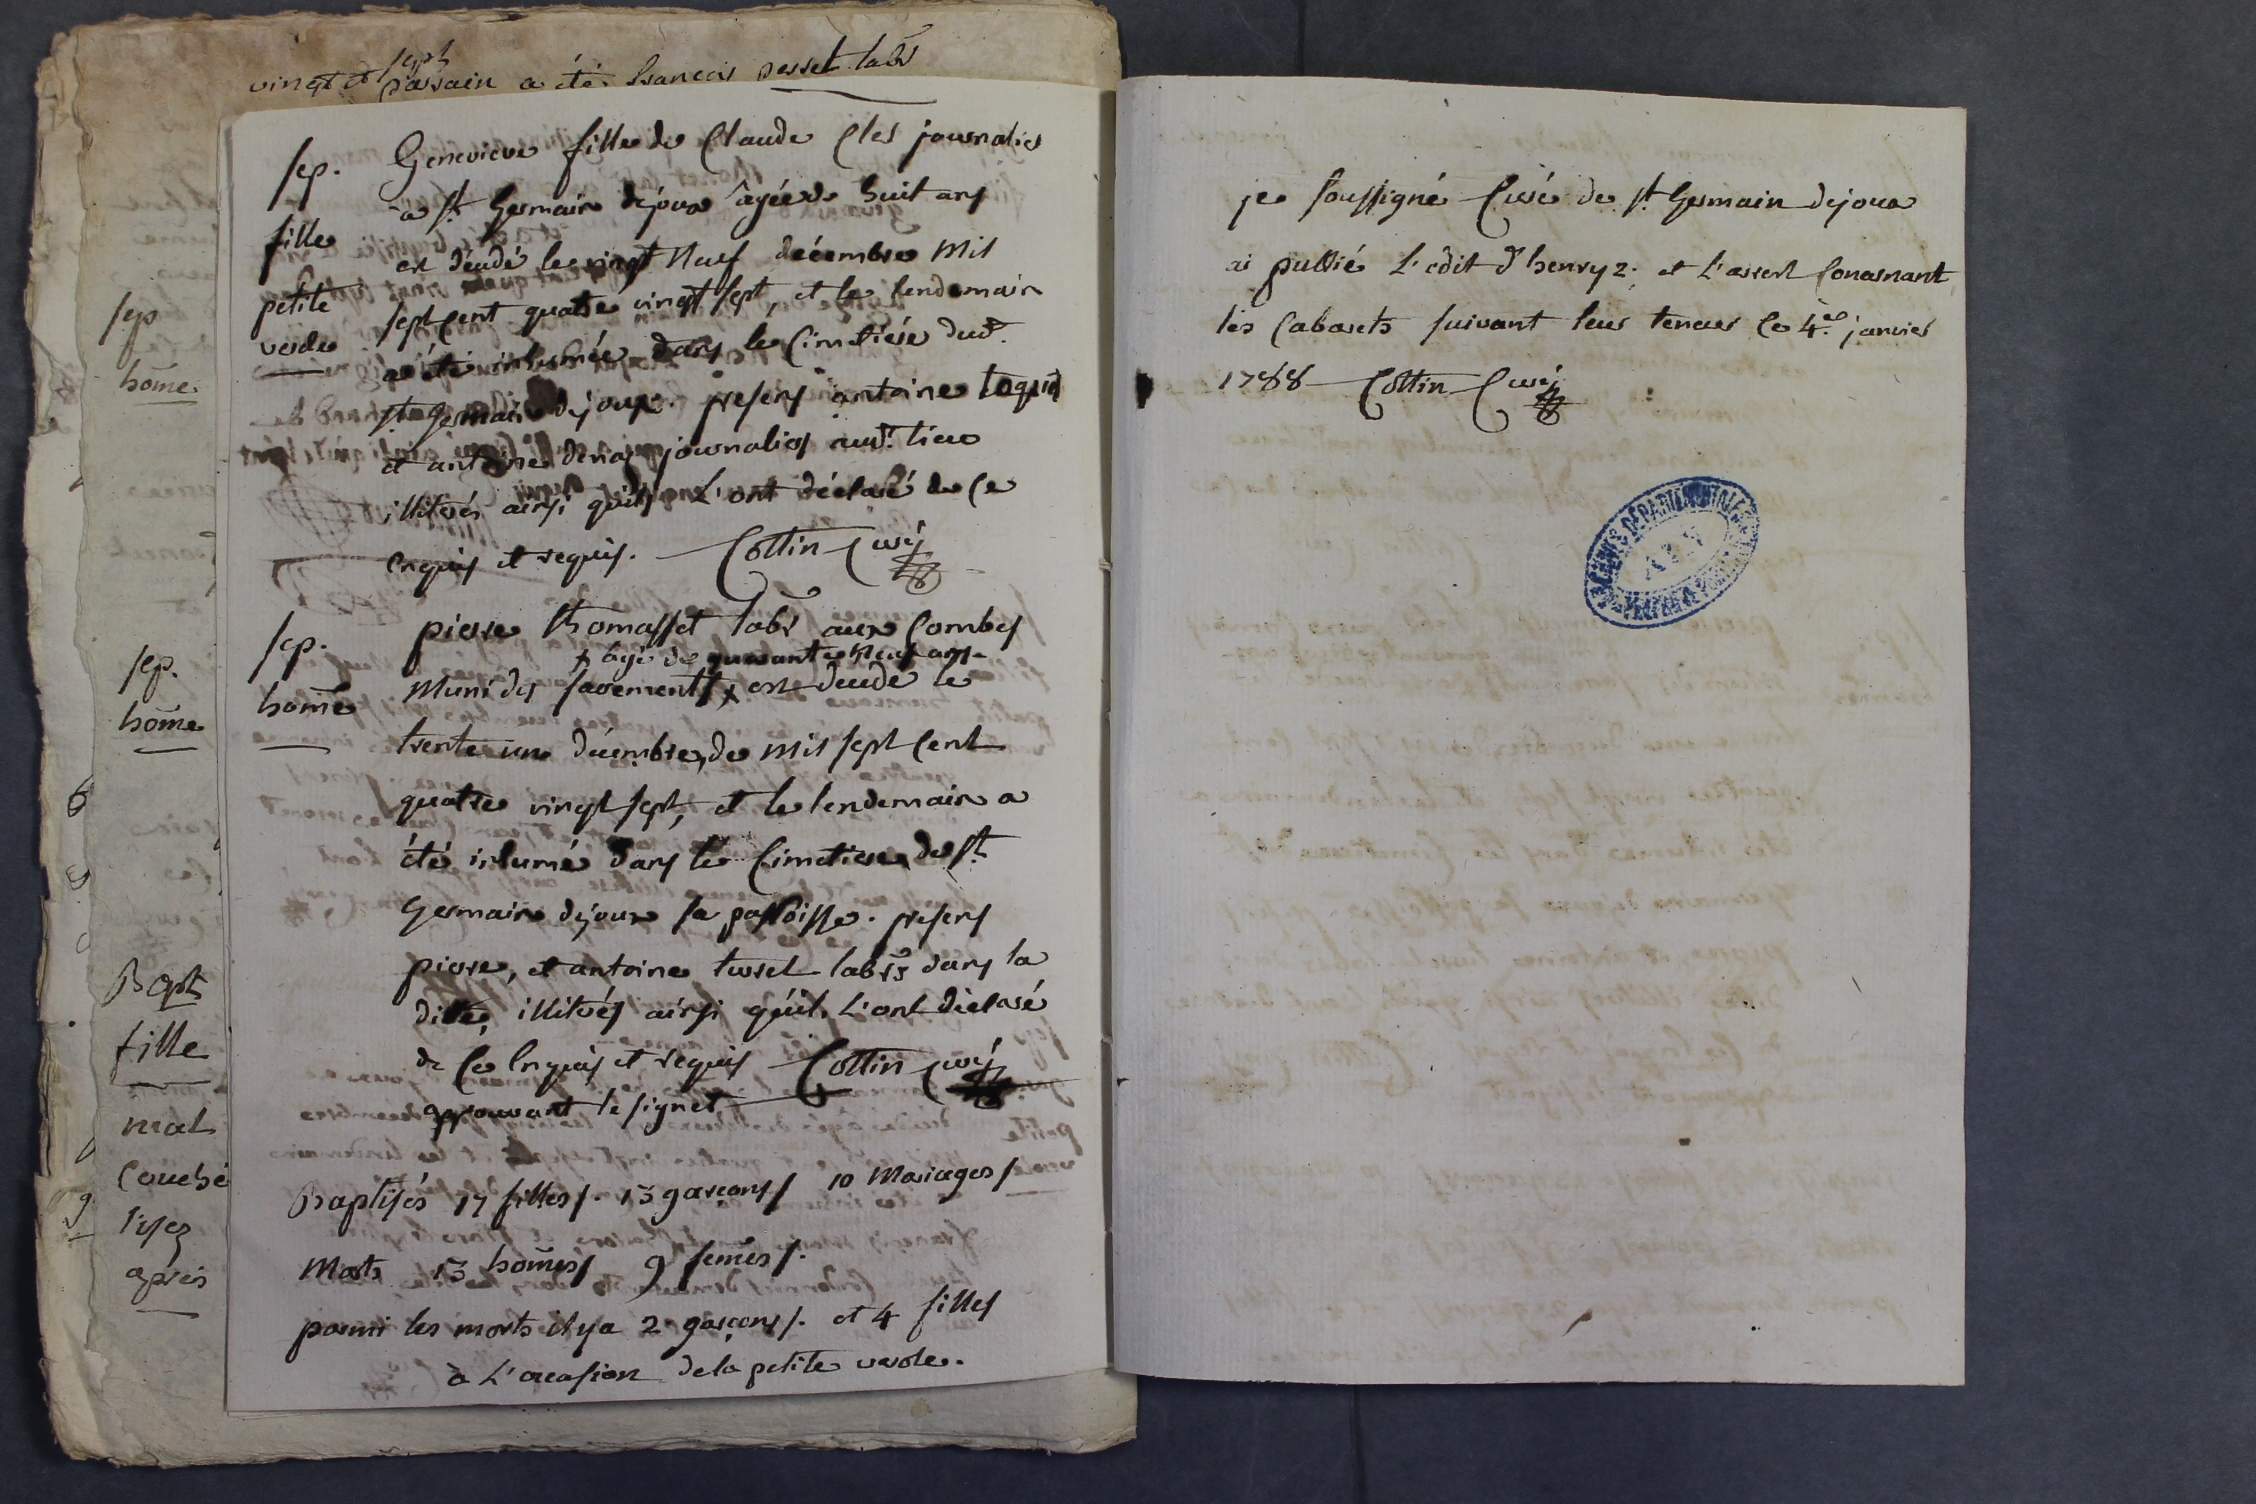 vingt et sept
parrain a été françois persset lab.r
sep
hõme.
sep.
hõme
Bapt
fille
mal
couché
apres
sep.
fille
petite
verole
Genevieve fille de Claude Cles journalier
a s.t Germain dejoux âgée de huit ans
est décédé le vingt neuf décembre mil
sept cent quatre vingt sept, et le lendemain
a été inhumée dans le cimetiere dud.t
s.t germain dejoux. presens antoine
et antoine journalies aud.t lieu
illiterés ainsi qu'ils L'ont déclaré de ce
enquis et requis. Cottin Curé
sep.
hõme
pierre thomasset lab.r aux Combes
x agé de quarante neuf ans
muni des sacements x est decede le
trente un décembre, de mil sept cent
quatre vingt sept, et le lendemain a
été inhumé dans le cimetiere de s.t
germain dejoux sa parroisse. presens
pierre, et antoine tersset lab.rs dans la
ditte, illiterés ainsi qu'ils L'ont déclaré
de ce enquis et requis Cottin Curé
approuvant le signet
Baptisés 17 filles. 13 garçons 10 Mariages
Morts 13 hõmes 9 femes.
parmi les morts il y a 2 garçons. et 4 filles
à L'occasion de la petite verole.
je soussigné Curé de s.t Germain dejoux
ai publié L'edit d'henry 2. et L'arrest Consernant
les Cabarets suivant leur teneur ce 4.e janvier
1788 Cottin Curé
ARCHIVES DÉPARTEMENTALES
AIN